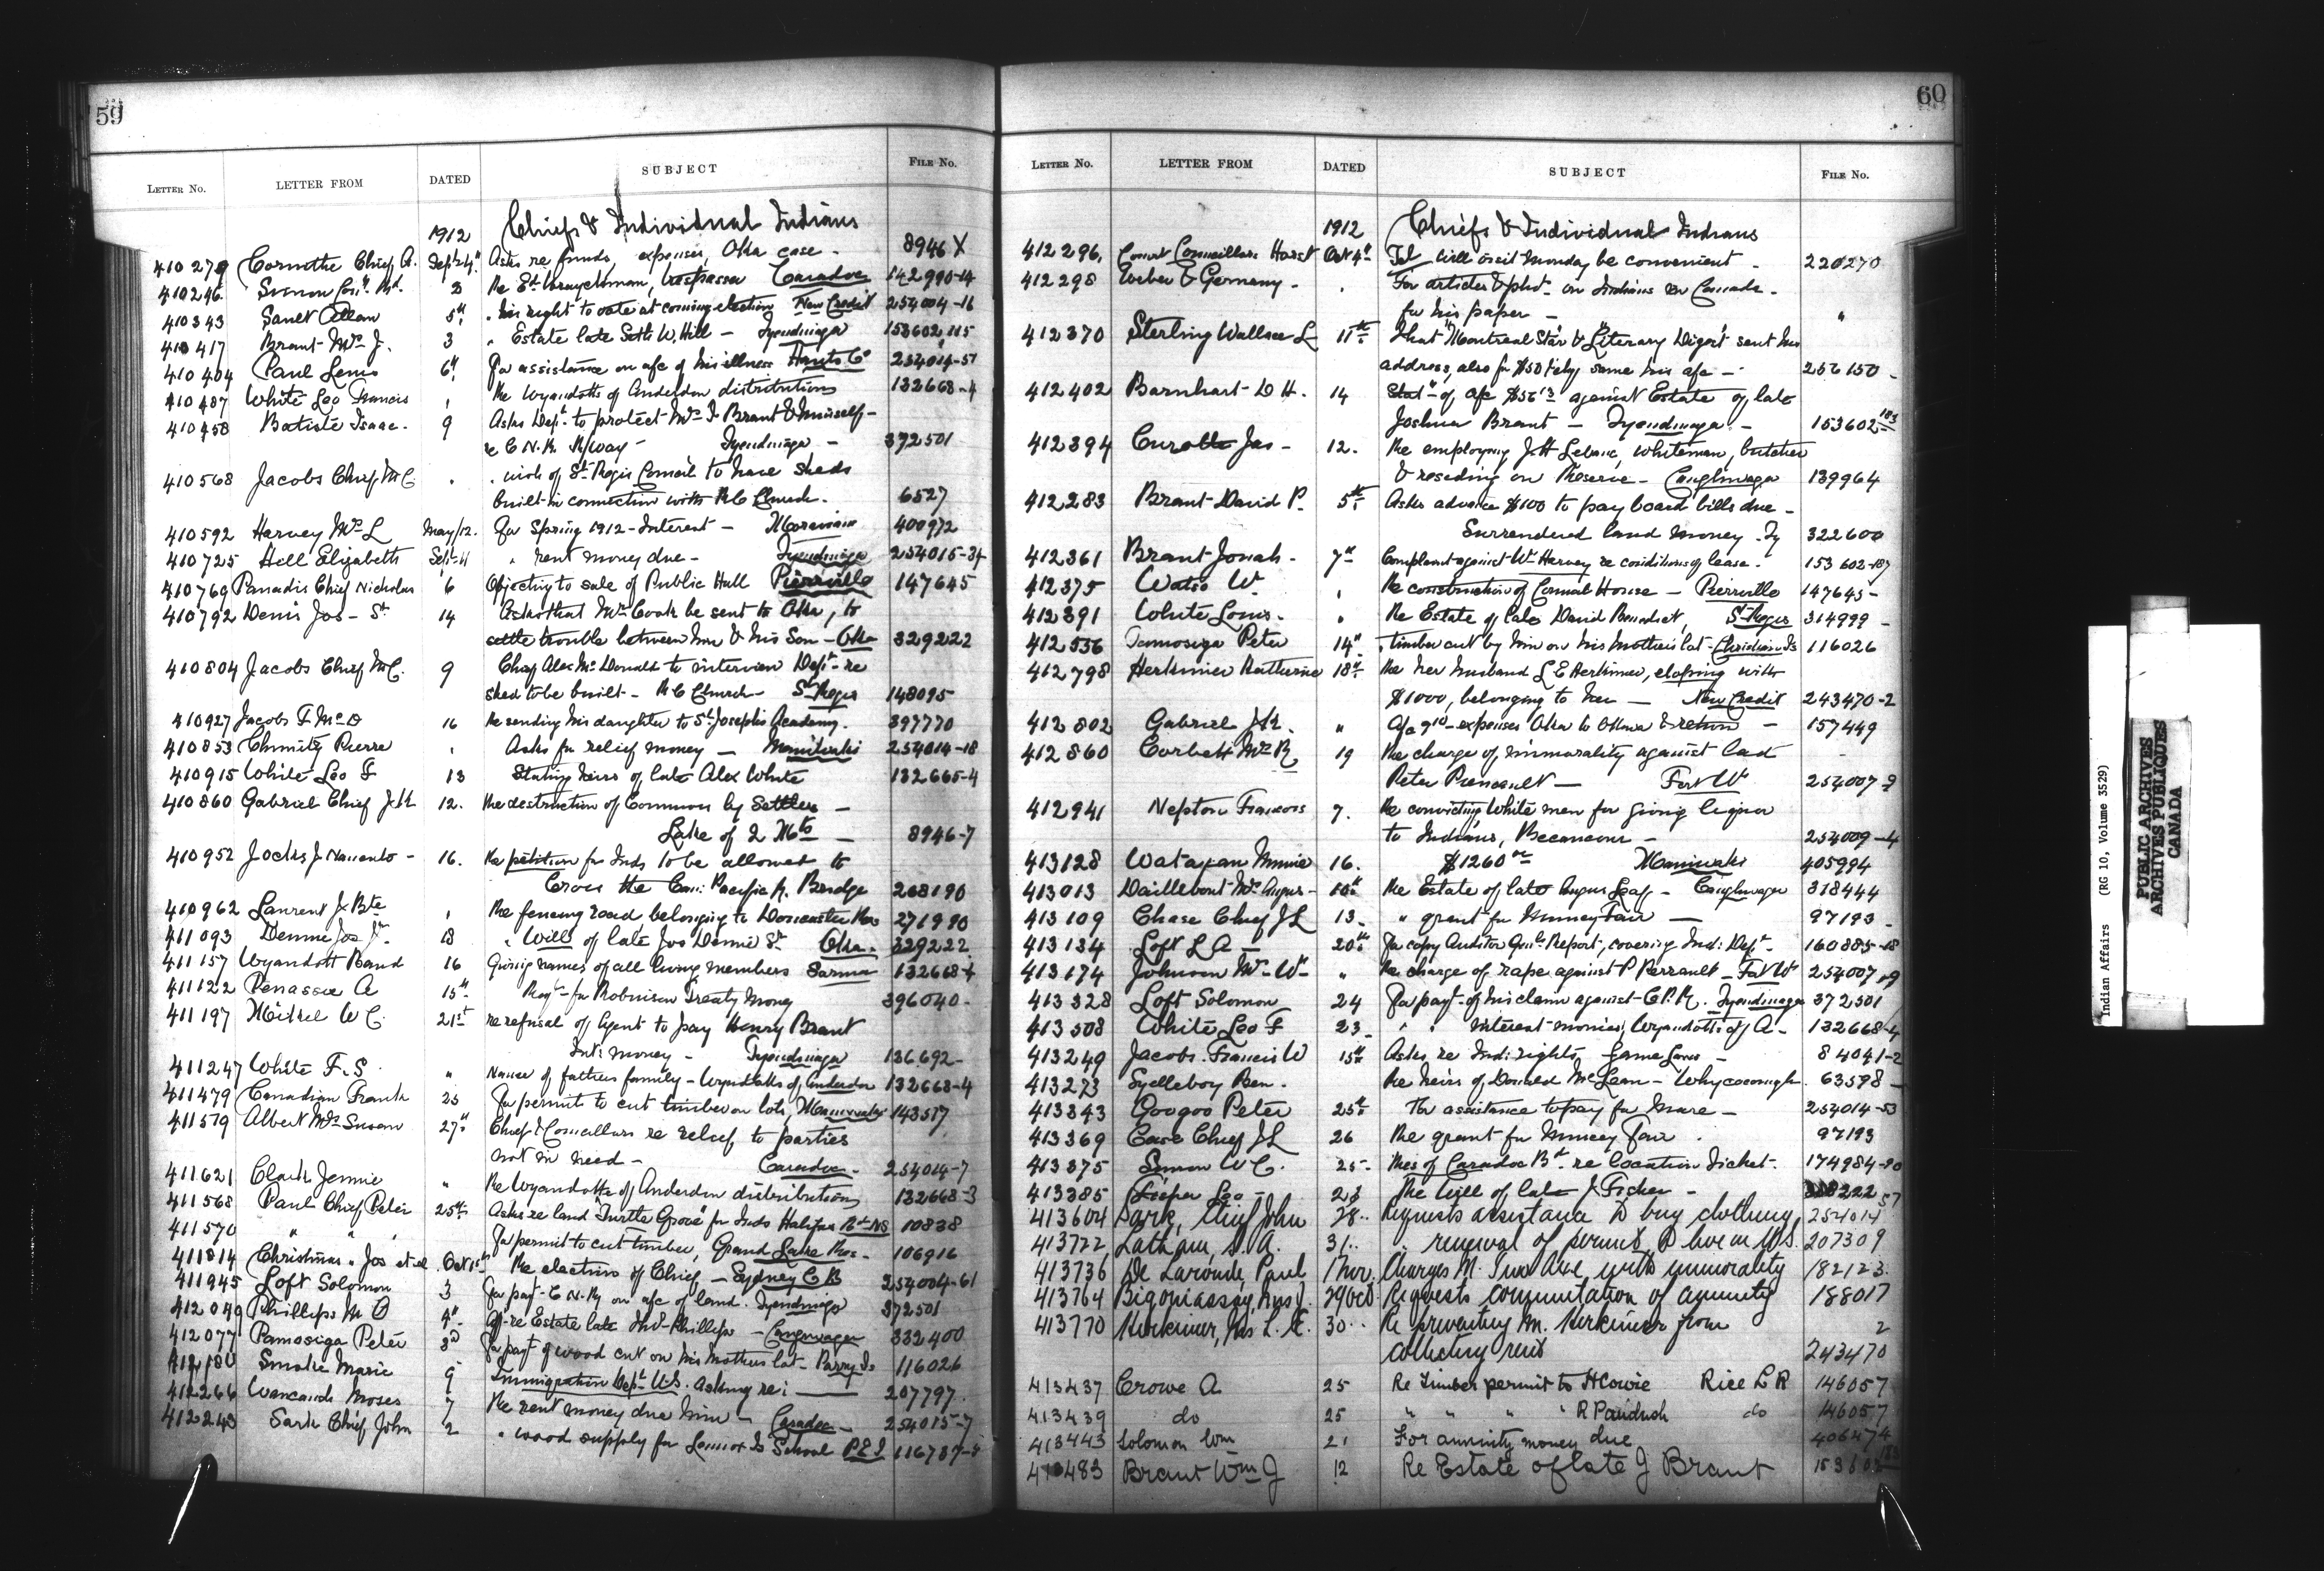 59
LETTER No. LETTER FROM DATED SUBJECT FILE No.
1912 Chiefs & Individual Indians
410279 Cornithe Chief A. Sept 24" Asks re funds, expenses, Oka case - 8946 X
410246 Simon 3 Re St. trespasser Caradoc 142990-14
410343 Sault Allan 5" . his right to vote at coming election New Credit 254004-16
410417 Brant Mrs J. 3 " Estate late Seth W. Hill - Tyendinaga 153602,115
410404 Paul Lewis 6" For assistance on a/c of his illness Hants Co 254014-51
410487 White Leo Francis " Re Wyandotts of Anderdon distributions 132668-4
410458 Batiste Isaac. 9 Asks Dept. to protect Mrs I. Brant & himself -
re C.N.R. R/way - Tyendinaga - 372501
410568 Jacobs Chief M C. " . wish of St Regis Council to have sheds
built in connection with R C Church. 6527
410592 Harvey Mrs L May/12. For Spring 1912 - Interest - Moravian 400972
410725 Hill Elizabeth Sept 11 " rent money due - Tyendinaga 254015-34
410769 Panadis Chief Nicholas 6 Objecting to sale of Public Hall Pierreville 147645
410792 Denis Jos - Sr 14 Asks that Mr Cook be sent to Oka, to
settle trouble between him & his Son - Oka 329222
410804 Jacobs Chief M C. 9 Chief Alex McDonald to interview Dept. re
shed to be built - R C Church - St Regis 148095
410927 Jacobs F. McD 16 Re sending his daughter to St Joseph's Academy. 397770
410853 Chimitz Pierre " Asks for relief money - Maniwaki 254014-18
410915 White Leo F 13 Stating heirs of late Alex White 132665-4
410860 Gabriel Chief J H 12. Re destruction of Commons by Settlers -
Lake of 2 Mts - 8946-7
410952 Jocks J. - 16. Re petition for Inds to be allowed to
Cross the Can: Pacific R. Bridge 268190
410962 Laurent J Bte " Re fencing road belonging to Doncaster Res 271990
411093 Dennie Jos Jr. 18 " Will of late Jos Dennie Sr. Oka. 329222
411157 Wyandott Band 16 Giving names of all living members Sarnia 132668-4
411122 Penassie A 15" for Robinson Treaty Money 396040-
411197 W C. 21st re refusal of Agent to pay Henry Brant
Int: money - Tyendinaga 136,692-
411247 White F. S. " Names of fathers family - Wyandotts of Anderdon 132668-4
411479 Canadian Frank 25 For permit to cut timber on lots, Maniwaki 143517
411579 Albert Mrs Susan 27" Chief & Councillors re relief to parties
not in need - Caradoc. 254014-7
411621 Clark Jennie " Re Wyandotts of Anderdon distributions 132668-3
411568 Paul Chief Peter 25th Asks re land "Turtle Grove" for Inds Halifax Co NS 10838
411570 " " " For permit to cut timber, Grand Lake Res. 106916
411814 Christmas Jos et al Oct 1st Re election of Chief - Sydney C B 254004-61
411945 Loft Solomon 3 For payt - C N. Ry on a/c of land. Tyendinaga 372501
412049 Phillips M O 4" re Estate late Phillips - Caughnawaga 332400
412077 Pamosiga Peter 3d For payt of wood cut on his mothers lot - Parry Is 116026
412180 Smoke Marie 9 Immigration Dept. U.S. asking re: 207797.
412266 Wancaush Moses 7 Re rent money due him - Caradoc - 254015-7
412243 Sark Chief John 2 " wood supply for Lennox Is School P E I 116787-5
60
LETTER No. LETTER FROM DATED SUBJECT FILE No.
1912 Chiefs & Individual Indians
412296. Councillors Oct 4" Tel will visit Monday be convenient - 220270
412298 Weber & Germany - . For articles & phot. on Indians in Canada -
for his paper - "
412370 Sterling Wallace L 11th That "Montreal Star & Literary Digest" sent his
address, also for $50 same his a/c - 256150 -
412402 Barnhart D H. 14 Stat" of a/c $56 13 against Estate of late
Joshua Brant - Tyendinaga - 153602 183
412394 Curotte Jas - 12. Re employing J H whiteman, butcher
& residing on Reserve - Caughnawaga 139964
412283 Brant David P. 5th Asks advance $100 to pay board bills due -
Surrendered land money. Ty 322600
412361 Brant Jonah - 7th Complaint against Wm Harvey re conditions of lease. 153602-187
412375 Watso W. " Re construction of Council House - Pierreville 147645-
412391 White Louis. " Re Estate of late David Benedict, St Regis 314999 -
412556 Pamosiga Peter 14" . timber cut by him on his mothers lot - Christian Is 116026
412798 Herkimer Katherine 18th Re her husband L E Herkimer, eloping with
$1000, belonging to her - New Credit 243470-2
412802 Gabriel J H. " expenses Oka to Ottawa & return - 157449
412860 Corbett Mrs R 19 Re charge of immorality against lad
Peter - Fort Wm 254007-9
412941 Nepton Francois 7. Re convicting White men for giving liquor
to Indians, Becancour - 254009-4
413128 Minnie 16. $1260 00 Maniwaki 405994
413013 Daillebout Mrs Angus - Re Estate of late Angus Leaf - Caughnawaga 318444
413109 Chase Chief J L 13 - " grant for Muncey Fair - 97193 -
413134 Loft L A - 20th For copy Auditor Genl's Report, covering Ind: Dept - 160885-18
413174 Johnson Mrs Wm " Re charge of rape against P Perrault - Fort Wm 254007-9
413328 Loft Solomon 24 For payt of his claim against C.P.R. Tyendinaga 372501
413508 White Leo F 23 - " " Interest monies, Wyandotts of A - 132668-4
413249 Jacobs Francis W 15th Asks re Ind: rights Game Laws - 84041-2
413273 Sylleboy Ben - Re heirs of Donald McLean - Whycocomagh. 63598 -
413343 Googoo Peter 25th For assistance to pay for Mare - 254014-53
413369 Case Chief J L 26 Re grant for Muncey Fair . 97193
413375 Simon W C. 25 - of Caradoc re location Ticket - 174984-20
413385 Leo - 23 Re Will of late J Fisher -
413604 Sark, Chief John 28.. Requests assistance to buy clothing, 254014 57
413722 Latham, S. A. 31.. " renewal of permit to live in U.S. 207309
413736 De Laronde, Paul 1 Nov. Charges M. with immorality 182123.
413764 Bigoniassay, Mrs J. 29 Oct Requests commutation of annuity 188017
413770 Herkimer, Mrs L. E. 30.. Re preventing M. Herkimer from
collecting rent 243470 2
413437 Crowe A 25 Re Timber permit to H Cowie Rice L R 146057
413439 do 25 " " " " R Paudash do 146057
413443 Solomon Wm 21 For annuity money due 406474
413483 Brant Wm J 12 Re Estate of late J Brant 153602 183
Indian Affairs (RG 10, Volume 3529)
PUBLIC ARCHIVES
ARCHIVES PUBLIQUES
CANADA